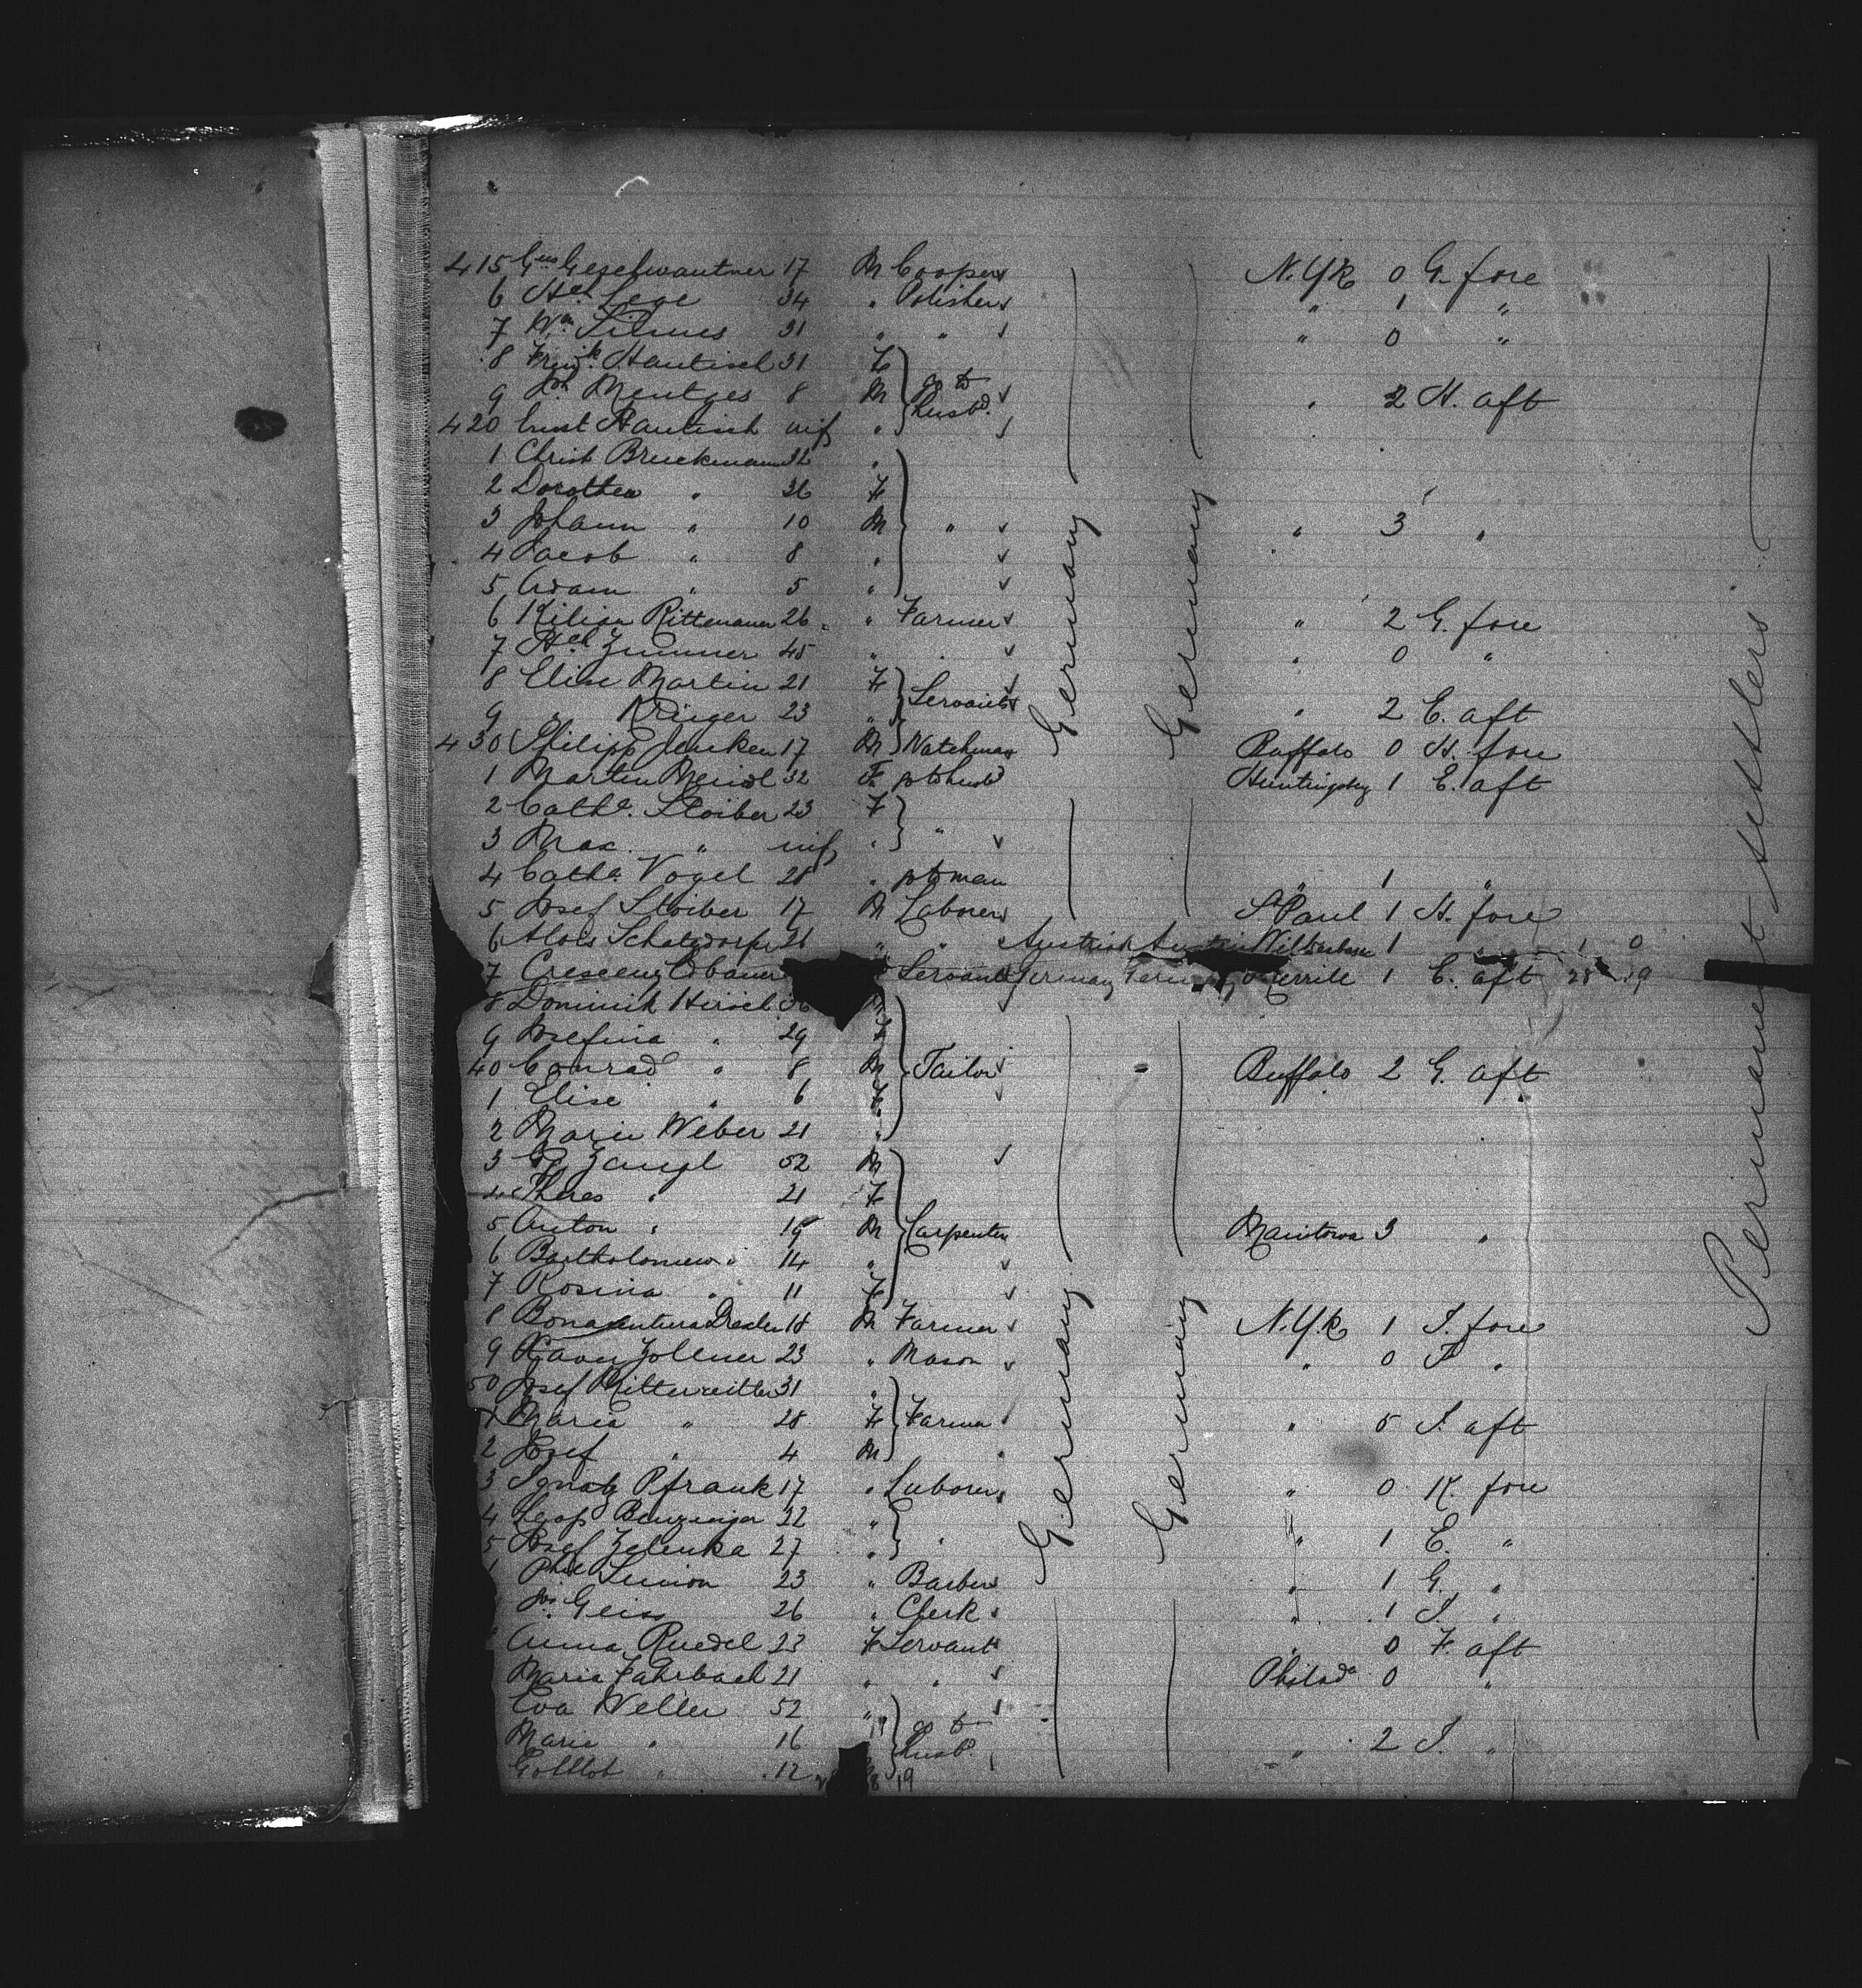 415 Gus Geschwantner 17 M Cooper N.Yk 0 G. fore
6 Hch Lege 34 " Polisher " 1 "
7 Wm Silmes 31 " " " 0 "
8 Fried.k Hautisch 31 F
9 Ph. Mentges 8 M go to husbd. " 2 H. aft
420 Ernst Hautisch inf "
1 Christ Bruckmann 32 "
2 Dorothea " 36 F
3 Johann " 10 M " " 3 "
4 Jacob " 8 "
5 Adam " 5 "
6 Kilian Rittenauer 26 " Farmer " 2 G. fore
7 Hch Zimmer 45 " " " 0 "
8 Elise Martin 21 F Servants
9 " Krüger 23 " " 2 E. aft
430 Philipp Jenken 17 M Watchman Buffalo 0 H. fore
1 Martin Meidl 32 F go to husbd Huntingsbg 1 E. aft
2 Catha. Stoiber 23 F
3 Max " inf " "
4 Catha. Vogel 28 " go to man " 1 "
5 Josef Stoiber 17 M Laborer St Paul 1 H. fore
6 Alois Schatzdorfer 21 " " Austria Austria Wilkesbarre 1 " 1 0
7 Crescenz Erbauer Servant Germany Germany Merrill 1 E. aft 28 19
8 Dominik Hirsch 36 M
9 Josefina " 29 F
40 Conrad " 8 M Tailor Buffalo 2 G. aft
1 Elise " 6 F
2 Marie Weber 21 "
3 G. Zangl 52 M
4 Theres " 21 F
5 Anton " 19 M Carpenter Manitowa 3 "
6 Bartholomew " 14 "
7 Rosina " 11 F
8 Bonaventura Drexler 18 M Farmer N.Y.k 1 I. fore
9 Xaver Zollner 23 " Mason " 0 F "
50 Josef Mitterreitter 31 "
1 Maria " 28 F Farmer " 5 I. aft
2 Josef " 4 M
3 Ignatz Pfrank 17 " Laborer " 0 K. fore
4 Leop Benzinger 22 "
5 Josef Zelenka 27 " " " 1 E. "
Phil Simon 23 " Barber " 1 G. "
Jos. Geiss 26 " Clerk " 1 I. "
Anna Ruedel 23 F Servant " 0 F. aft
Maria Fahrbach 21 " " Philada 0 "
Eva Weller 52 "
Marie " 16 " go to husbd " 2 I. "
Gottlob " 12
8 19
Germany
Germany
Germany
Germany
Permanent settlers